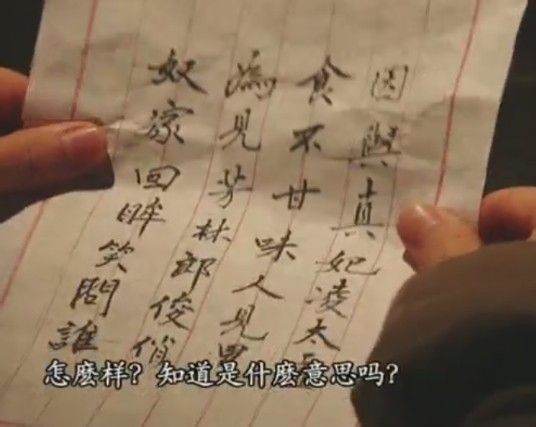 因與真妃凌太
食不甘味人見
為見芳林郎俊俏
奴家回眸笑問誰
怎麽样？知道是什麽意思吗？